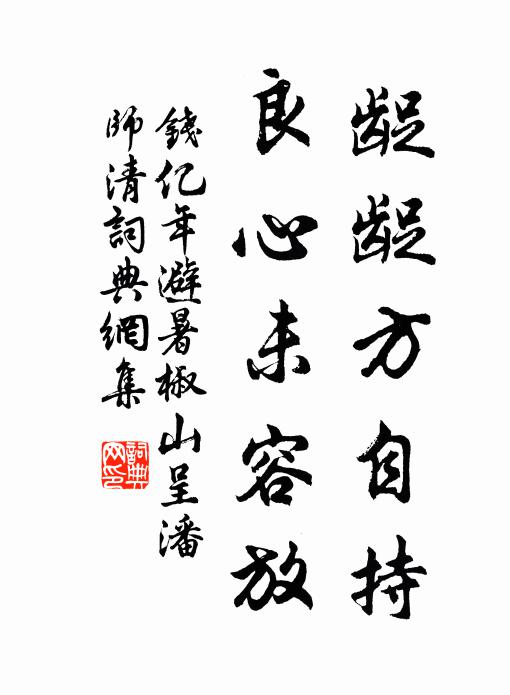 龊龊方自持
良心未容放
錢亿年避暑椒山呈潘
師清詞典網集
詞典網印